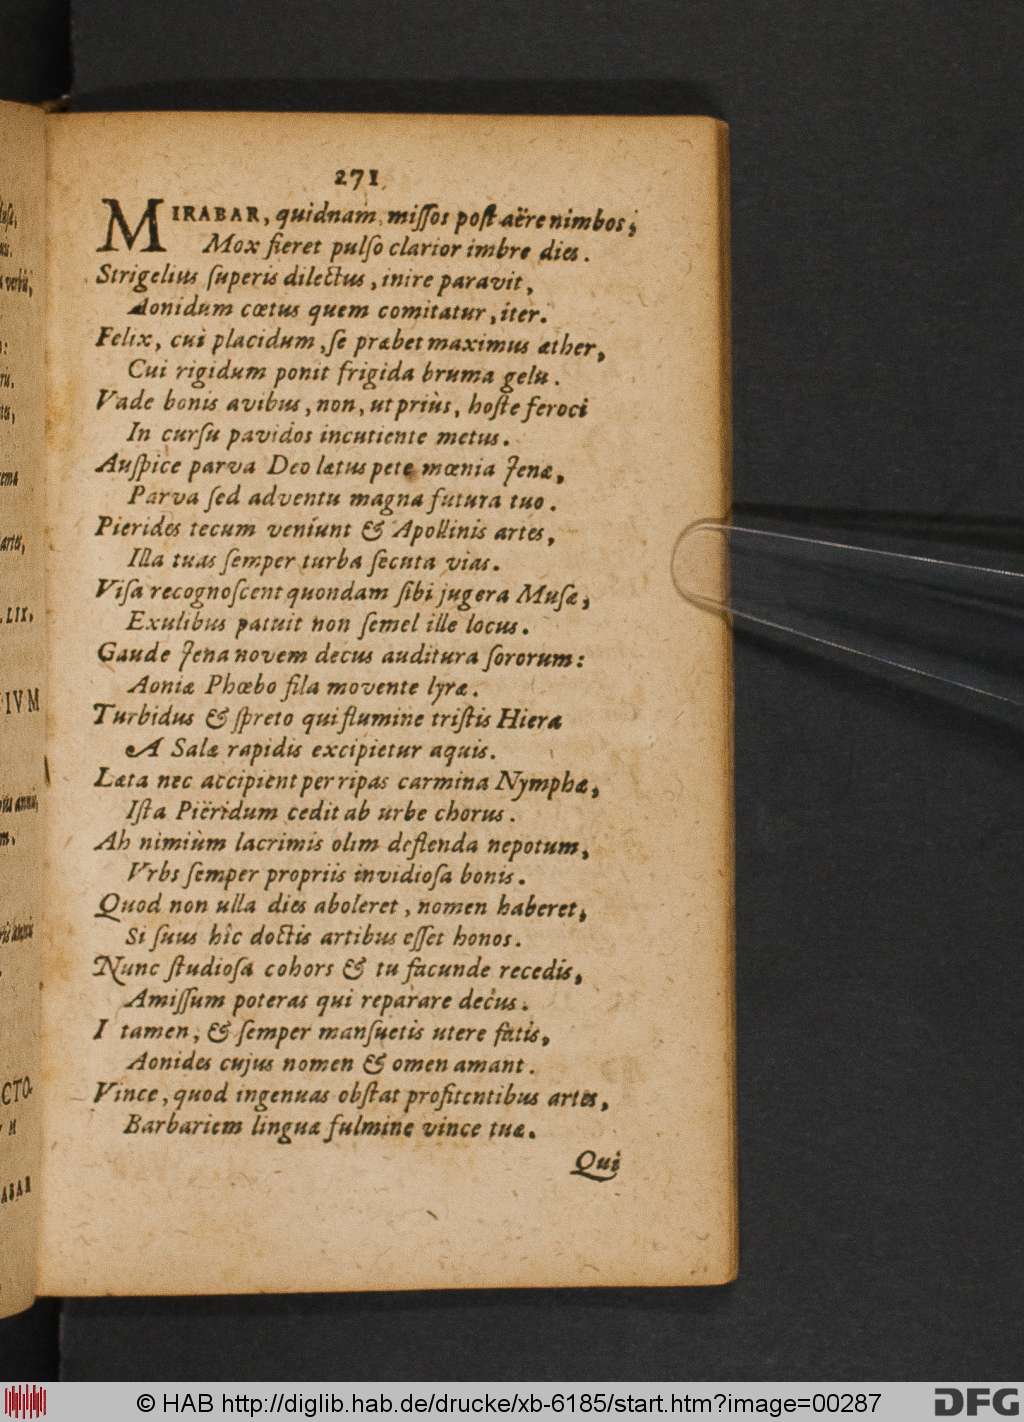 271
MIRABAR, quidnam, missos post aëre nimbos;
Mox fieret pulso clarior imbre dies.
Strigelius superis dilectus, inire paravit,
Aonidum cœtus quem comitatur, iter.
Felix, cui placidum, se præbet maximus æther,
Cui rigidum ponit frigida bruma gelu.
Vade bonis avibus, non, ut priùs, hoste feroci
In cursu pavidos incutiente metus.
Auspice parva Deo lætus pete mœnia Jenæ,
Parva sed adventu magna futura tuo.
Pierides tecum veniunt & Apollinis artes,
Illa tuas semper turba secuta vias.
Visa recognoscent quondam sibi jugera Musæ,
Exulibus patuit non semel ille locus.
Gaude Jena novem decus auditura sororum:
Aoniæ Phœbo fila movente lyræ.
Turbidus & spreto qui flumine tristis Hiera
A Salæ rapidis excipietur aquis.
Læta nec accipient per ripas carmina Nymphæ,
Ista Piëridum cedit ab urbe chorus.
Ah nimiùm lacrimis olim deflenda nepotum,
Vrbs semper propriis invidiosa bonis.
Quod non ulla dies aboleret, nomen haberet,
Si suus hîc doctis artibus esset honos.
Nunc studiosa cohors & tu facunde recedis,
Amissum poteras qui reparare decus.
I tamen, & semper mansuetis utere fatis,
Aonides cujus nomen & omen amant.
Vince, quod ingenuas obstat profitentibus artes,
Barbariem linguæ fulmine vince tuæ.
Qui
LIX,
IVM
CTO-
© HAB http://diglib.hab.de/drucke/xb-6185/start.htm?image=00287
DFG